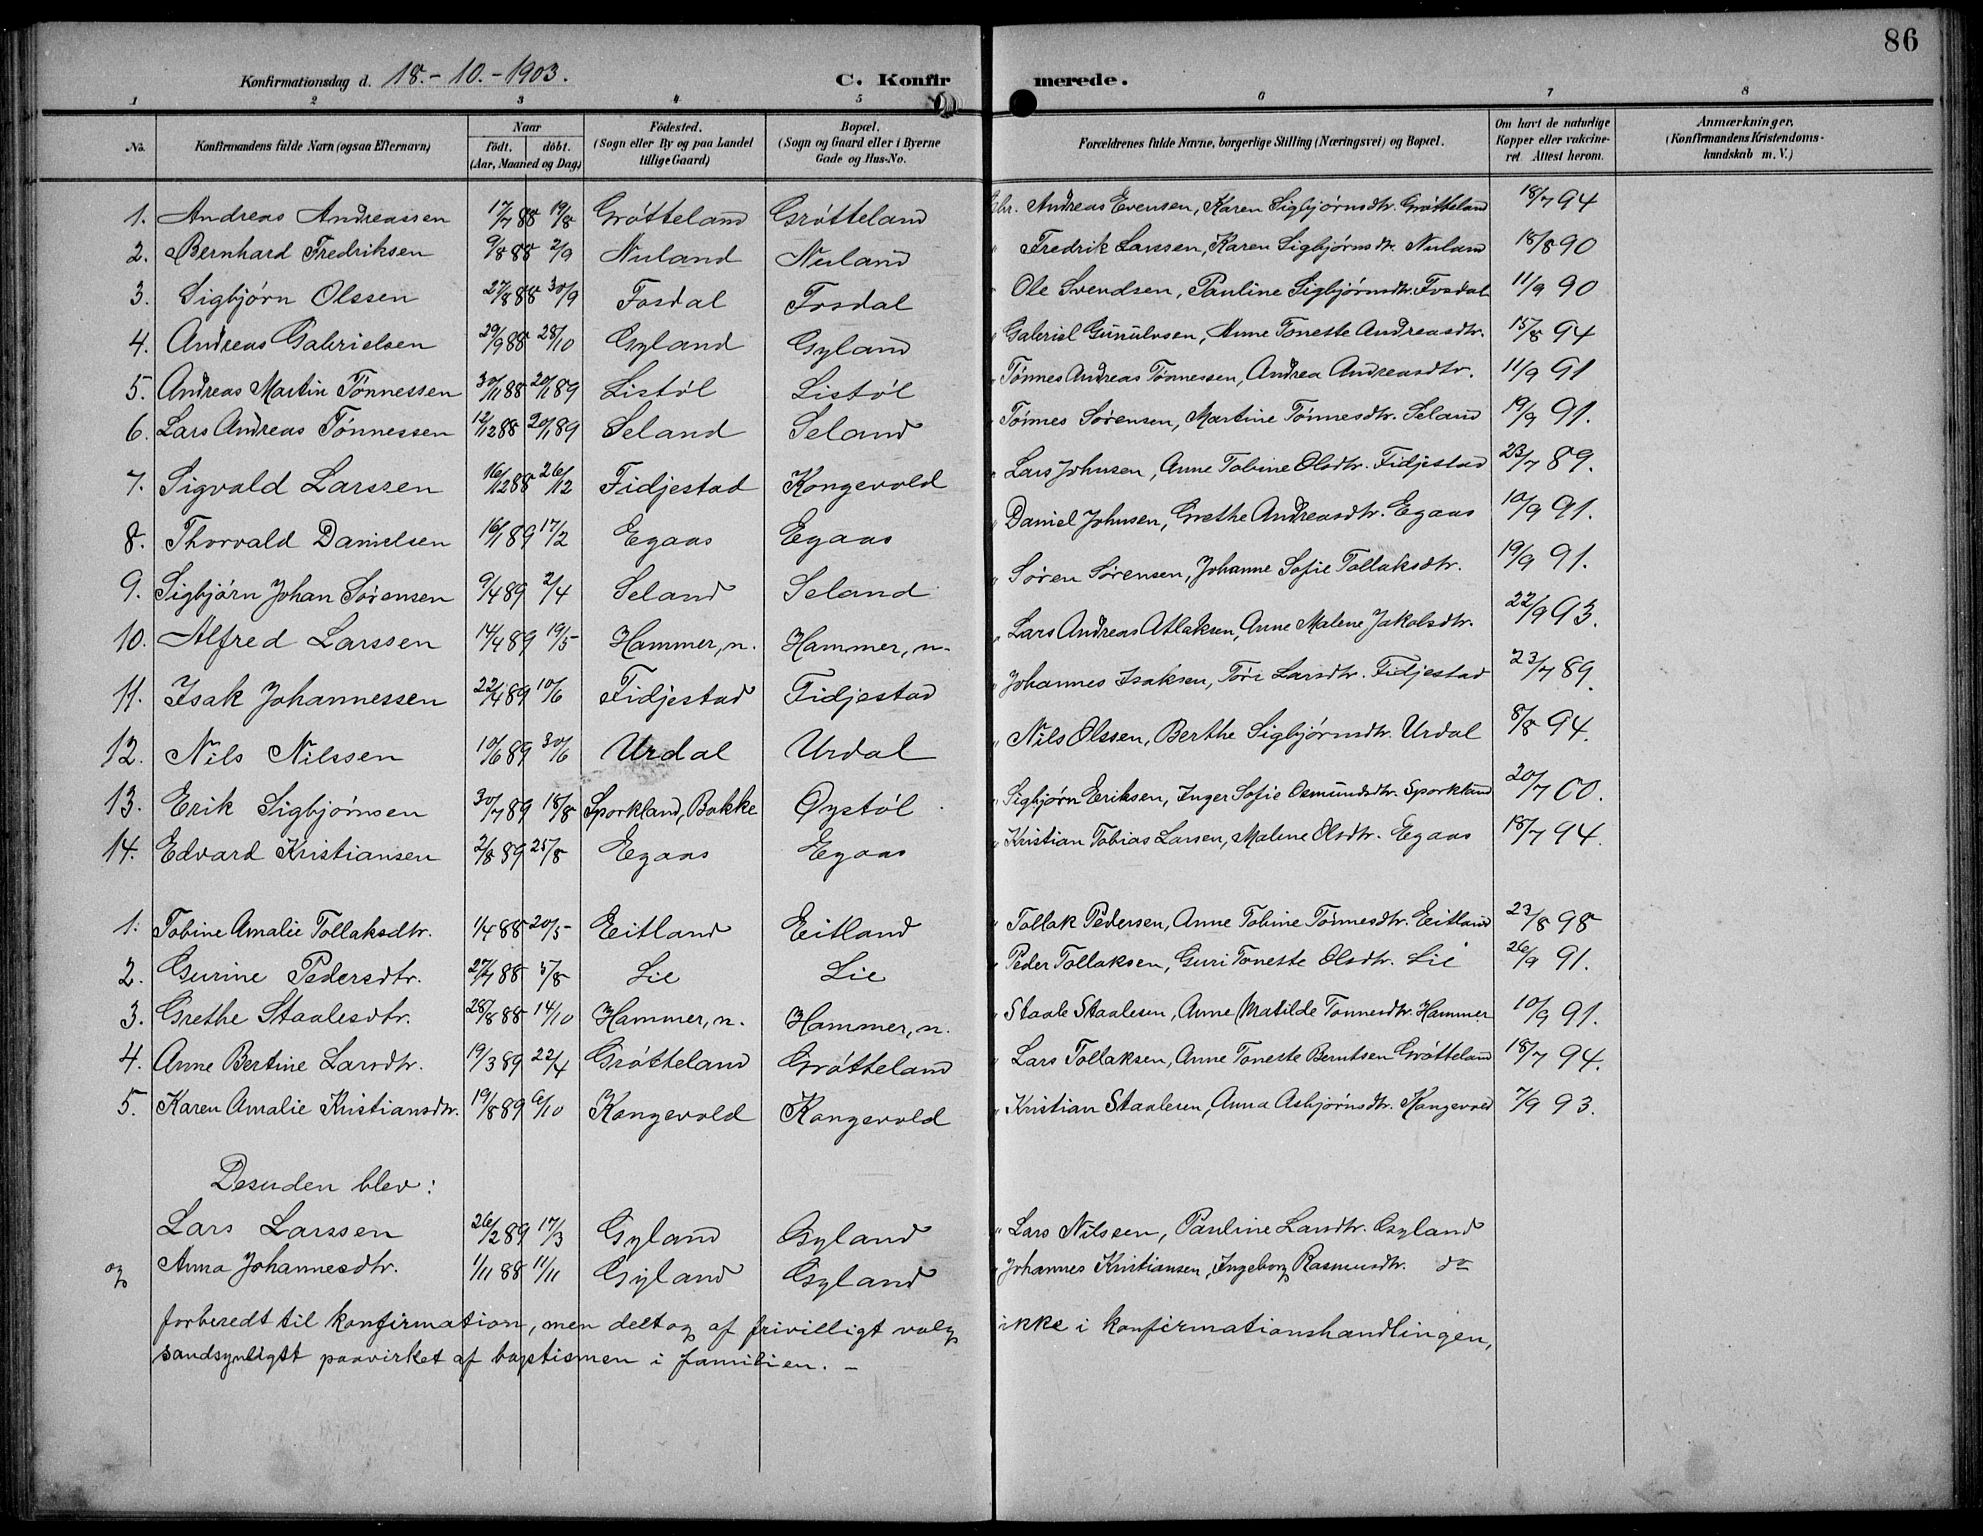 86
Konfirmationsdag d. 18.-10.-1903. C. Konfirmerede.
1 2 3 4 5 6 7 8
No. Konfirmandens fulde Navn (ogsaa Efternavn) Naar födt. döbt. (Aar, Maaned og Dag.) Födested. (Sogn eller By og paa Landet tillige Gaard) Bopæl. (Sogn og Gaard eller i Byerne Gade og Hus-No. Forældrenes fulde Navne, borgerlige Stilling (Næringsvei) og Bopæl. Om havt de naturlige Kopper eller vakcineret. Attest herom. Anmærkninger. (Konfirmandens Kristendomskundskab m. V.)
1. Andreas Andreassen 17/7 88 19/8 Grøtteland Grøtteland Gbr. Andreas Evensen, Karen Sigbjørnsdtr. Grøtteland 18/7 94
2. Bernhard Fredriksen 9/8 88 2/9 Nuland Nuland " Fredrik Larssen, Karen Sigbjørnsdtr. Nuland 18/8 90
3. Sigbjørn Olssen 27/8 88 30/9 Fosdal Fosdal " Ole Svendsen, Pauline Sigbjørnsdtr. Fosdal 11/9 90
4. Andreas Gabrielsen 29/9 88 28/10 Gyland Gyland " Gabriel Gunulvsen, Anne Toneste Andreasdtr. 15/8 94
5. Andreas Martin Tønnessen 30/11 88 20/1 89 Listøl Listøl " Tønnes Andreas Tønnessen, Andrea Andreasdtr. 11/9 91
6. Lars Andreas Tønnessen 12/12 88 20/1 89 Seland Seland " Tønnes Sørensen, Martine Tønnesdtr. Seland 19/9 91.
7. Sigvald Larssen 16/12 88 26/12 Fidjestad Kongevold " Lars Johnsen, Anne Tobine Olsdtr. Fidjestad 23/7 89.
8. Thorvald Danielsen 16/1 89 17/2 Egaas Egaas " Daniel Johnsen, Grethe Andreasdtr. Egaas 10/9 91.
9. Sigbjørn Johan Sørensen 9/4 89 2/4 Seland Seland " Søren Sørensen, Johanne Sofie Tollaksdtr. 19/9 91.
10. Alfred Larssen 14/4 89 19/5 Hammer, n. Hammer, n. " Lars Andreas Atlaksen, Anne Malene Jakobsdtr. 22/9 93.
11. Isak Johannessen 22/4 89 10/6 Fidjestad Fidjestad " Johannes Isaksen, Tøri Larsdtr. Fidjestad 23/7 89.
12. Nils Nilssen 10/6 89 30/6 Urdal Urdal " Nils Olssen, Berthe Sigbjørnsdtr. Urdal 8/8 94.
13. Erik Sigbjørnsen 30/7 89 18/8 Sporkland, Bakke Øystøl " Sigbjørn Eriksen, Inger Sofie Osmundsdtr. Sporkland 20/7 00.
14. Edvard Kristiansen 2/8 89 25/8 Egaas Egaas " Kristian Tobias Larsen, Malene Olsdtr. Egaas 18/7 94.
1. Tobine Amalie Tollaksdtr. 1/4 88 20/5 Eitland Eitland " Tollak Pedersen, Anne Tobine Tønnesdtr. Eitland 23/8 98
2. Gurine Pedersdtr. 27/7 88 5/8 Lie Lie " Peder Tollaksen, Guri Toneste Olsdtr. Lie 26/9 91.
3. Grethe Staalesdtr. 28/8 88 14/10 Hammer, n. Hammer, n. " Staale Staalesen, Anne Matilde Tonnesdtr. Hammer 10/9 91.
4. Anne Bertine Larsdtr. 19/3 89 22/4 Grøtteland Grøtteland " Lars Tollaksen, Anne Toneste Berntsen Grøtteland 18/7 94.
5. Karen Amalie Kristiansdtr. 19/8 89 6/10 Kongevold Kongevold " Kristian Staalesen, Anna Asbjørnsdtr. Kongevold 7/9 93.
Desuden blev:
Lars Larssen 26/2 89 17/3 Gyland Gyland " Lars Nilssen, Pauline Larsdtr. Gyland
og Anna Johannesdtr. 1/11 88 11/11 Gyland Gyland " Johannes Kristiansen, Ingeborg Rasmusdtr. do
forberedt til konfirmation, men deltog af frivilligt valg ikke i konfirmationshandlingen,
sandsynligst paavirket af baptismen i familien. –